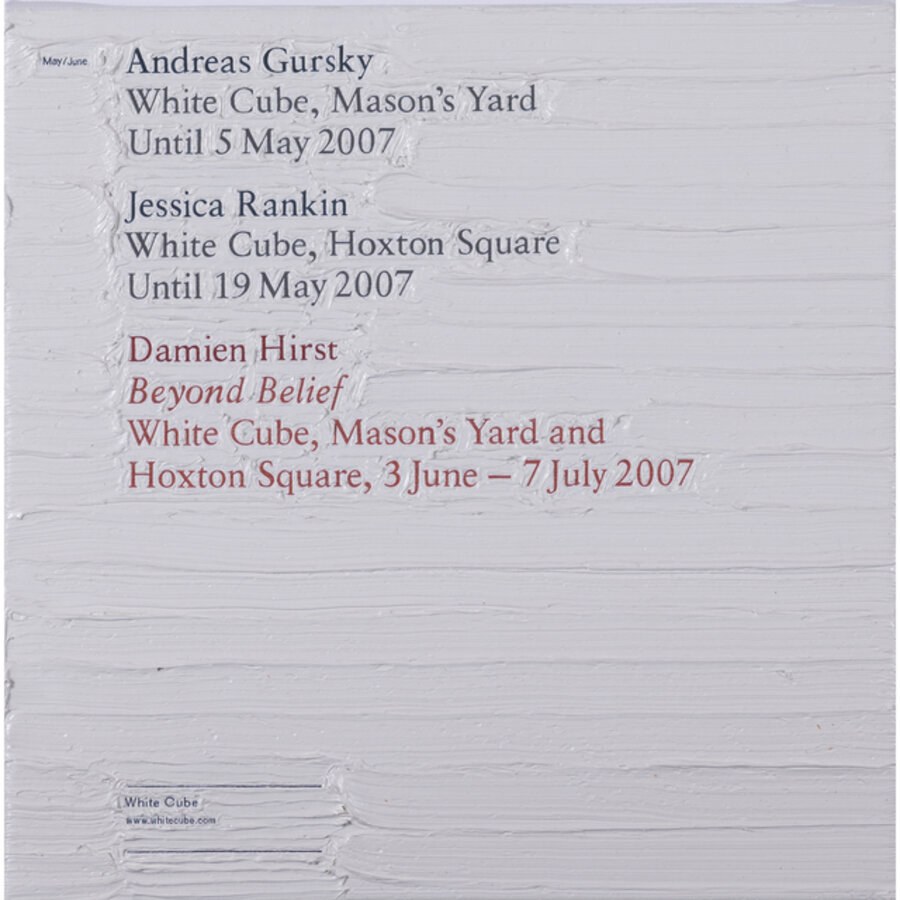 May/June
Andreas Gursky
White Cube, Mason's Yard
Until 5 May 2007
Jessica Rankin
White Cube, Hoxton Square
Until 19 May 2007
Damien Hirst
Beyond Belief
White Cube, Mason's Yard and
Hoxton Square, 3 June – 7 July 2007
White Cube
www.whitecube.com